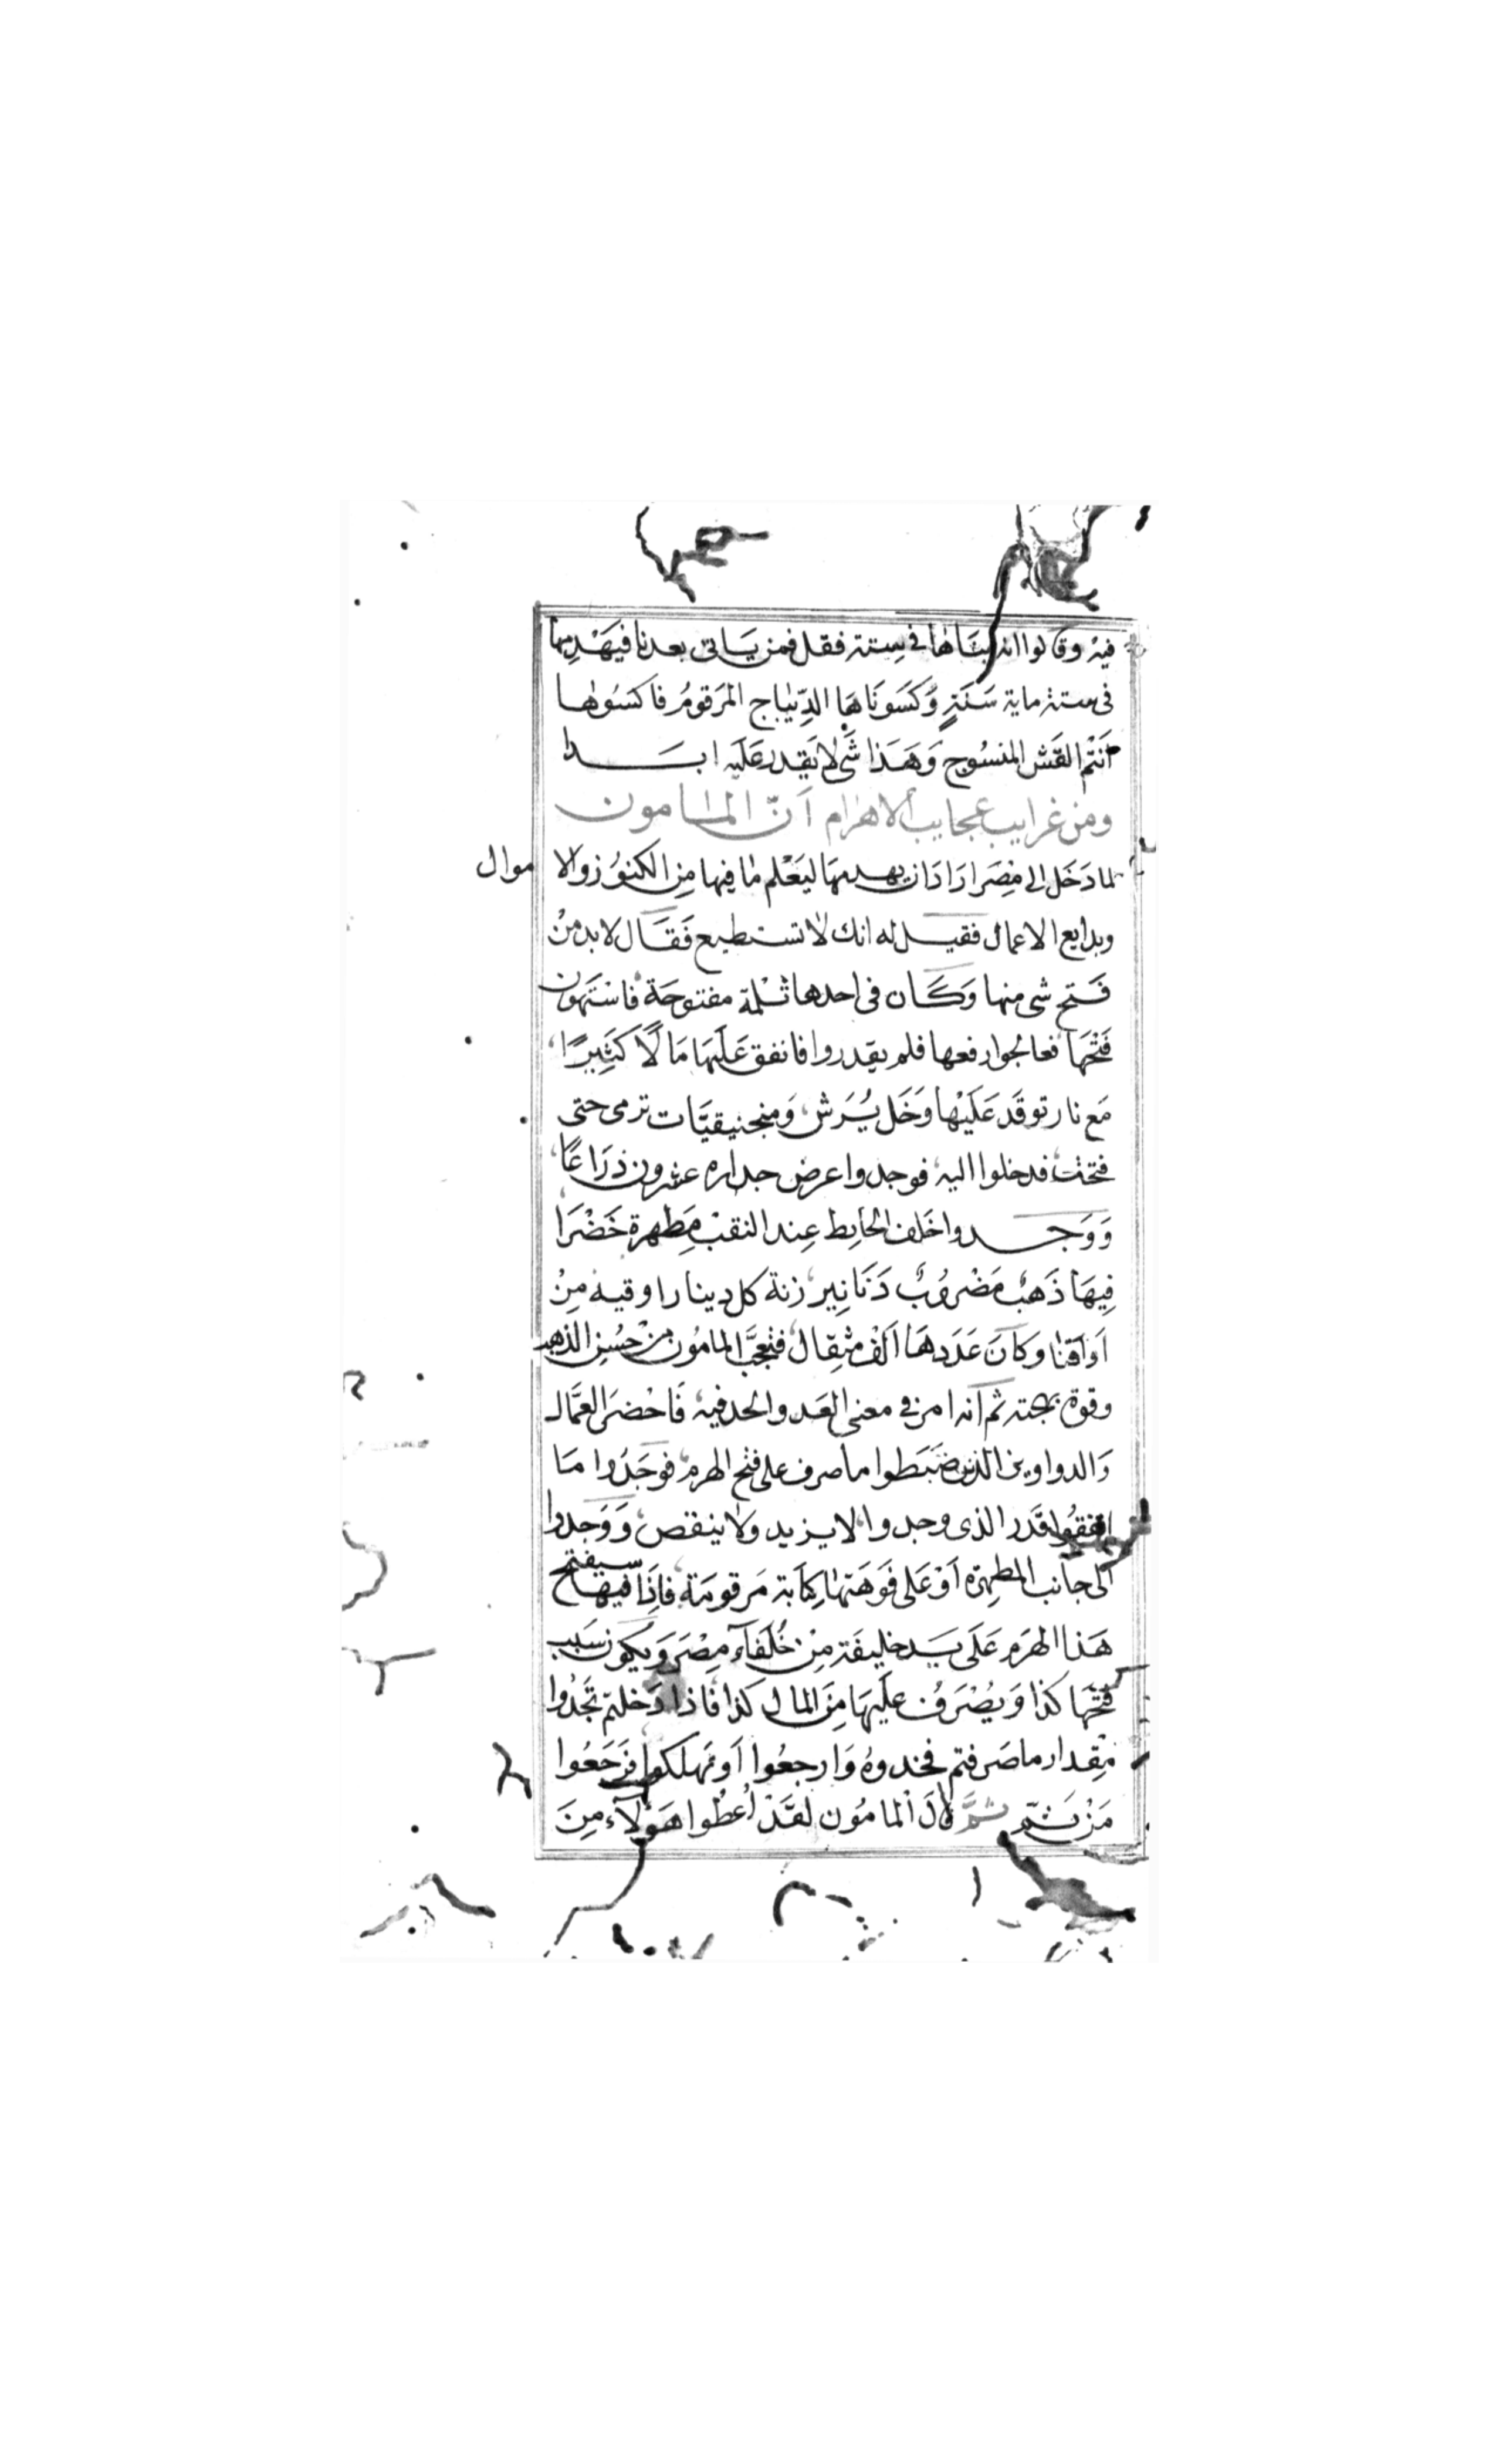 فيه وقالوا انه بناها في ستة فقل فمن ياتى بعدنا فيهدمها
فى ستة ماية سَنَةٍ وَكَسَونَاهَا الدِّيباج المَرَقومُ فاكسُوها
اَنتُم القَش المنسُوج وَهَذا شَى لا يَقِدر عَلَيه ابَدا
ومن غرايب عجايب الاهرام اَنّ المامون
لما دَخَل الى مِصرَ ارَادَ ان يهدمهَا ليَعْلم ما فيها مِن الكنوُز والاموال
وبدايع الاعمال فقيل له انك لا تستطيع فَقَال لابد مِنْ
فَتح شى منها وَكَان فى احدها ثلمة مفتوحَة فاستَهون
فَتحهَا فعالجوا رفعها فلم يقدروا فانفق عَلَيهَا مَالًا كَثِيرًا
مَع نار توقَد عَلَيْها وَخَل يُرَش وَمنجنيقيَّات ترمى حتى
فتحت فدخلوا اليه فوجدوا عرض جداره عشرون ذرَاعًا
وَوَجدوا خَلف الحَايِط عِند النقبْ مِطهرة خَضْرَا
فِيهَا ذَهبٌ مَضْروُبٌ دَنَانِير زنة كل دينار اوقيه مِنْ
اَوَاقنا وكانَ عَدَدهَا اَلف مثِقال فتعجَّب المامُون من حُسن الذهب
وقوة بهجته ثم اَنه امر فى معنى العَد والحد فيه فَاحْضرَ العمَّال
وَالدواوين الذين ضَبَطوا ما صرف على فتح الهرم فوَجَدُوا مَا
انفقُوا قَدر الذى وجدوا لا يزيد ولا ينقص وَوَجدوا
الى جانب المطهرة اَوْ عَلى فَوهَتها كِتابة مَرقومَة فاِذَا فيها سيفتح
هَذا الهرَم عَلَى يَد خليفَة مِنْ خُلفآء مِصْرَ وَيكوُن سَبَب
فَتحهَا كذا وَيُصْرَفُ عليَهَا مِنَ المال كذا فَاذا دَخلتم تجَدُوا
مْقِدار ما صَرفتم فخدوهُ وَارجعُوا اَو تهلكوا فرَجَعُوا
مَنْ ثم ثمَّ قالَ المامُون لقَدْ اُعطُوا هَؤلآء مِنَ